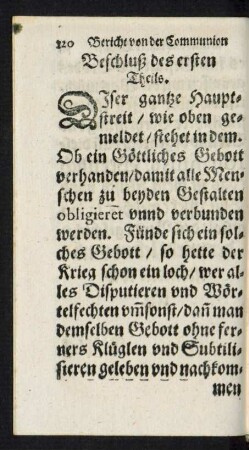 120 Bericht von der Communion
Beschluß des ersten
Theils.
DIser gantze Haupt-
streit / wie oben ge-
meldet / stehet in dem.
Ob ein Göttliches Gebott
verhanden / damit alle Men-
schen zu beyden Gestalten
obligieret vnnd verbunden
werden. Fünde sich ein sol-
ches Gebott / so hette der
Krieg schon ein loch / wer al-
les Disputieren vnd Wör-
telfechten vm̃sonst / dañ man
demselben Gebott ohne fer-
ners Klüglen vnd Subtili-
sieren geleben vnd nachkom-
men